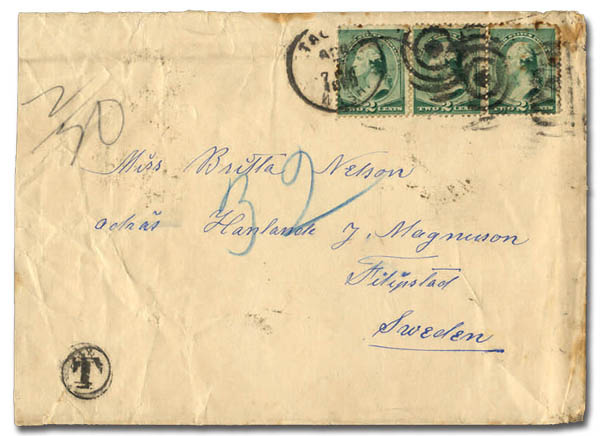 TAC
APR
7
TWO 2 CENTS
TWO 2 CENTS
TWO 2 CENTS
Miss Britta Nelson
32
adräs Hanlande J. Magnuson
Filipstad
Sweden
T